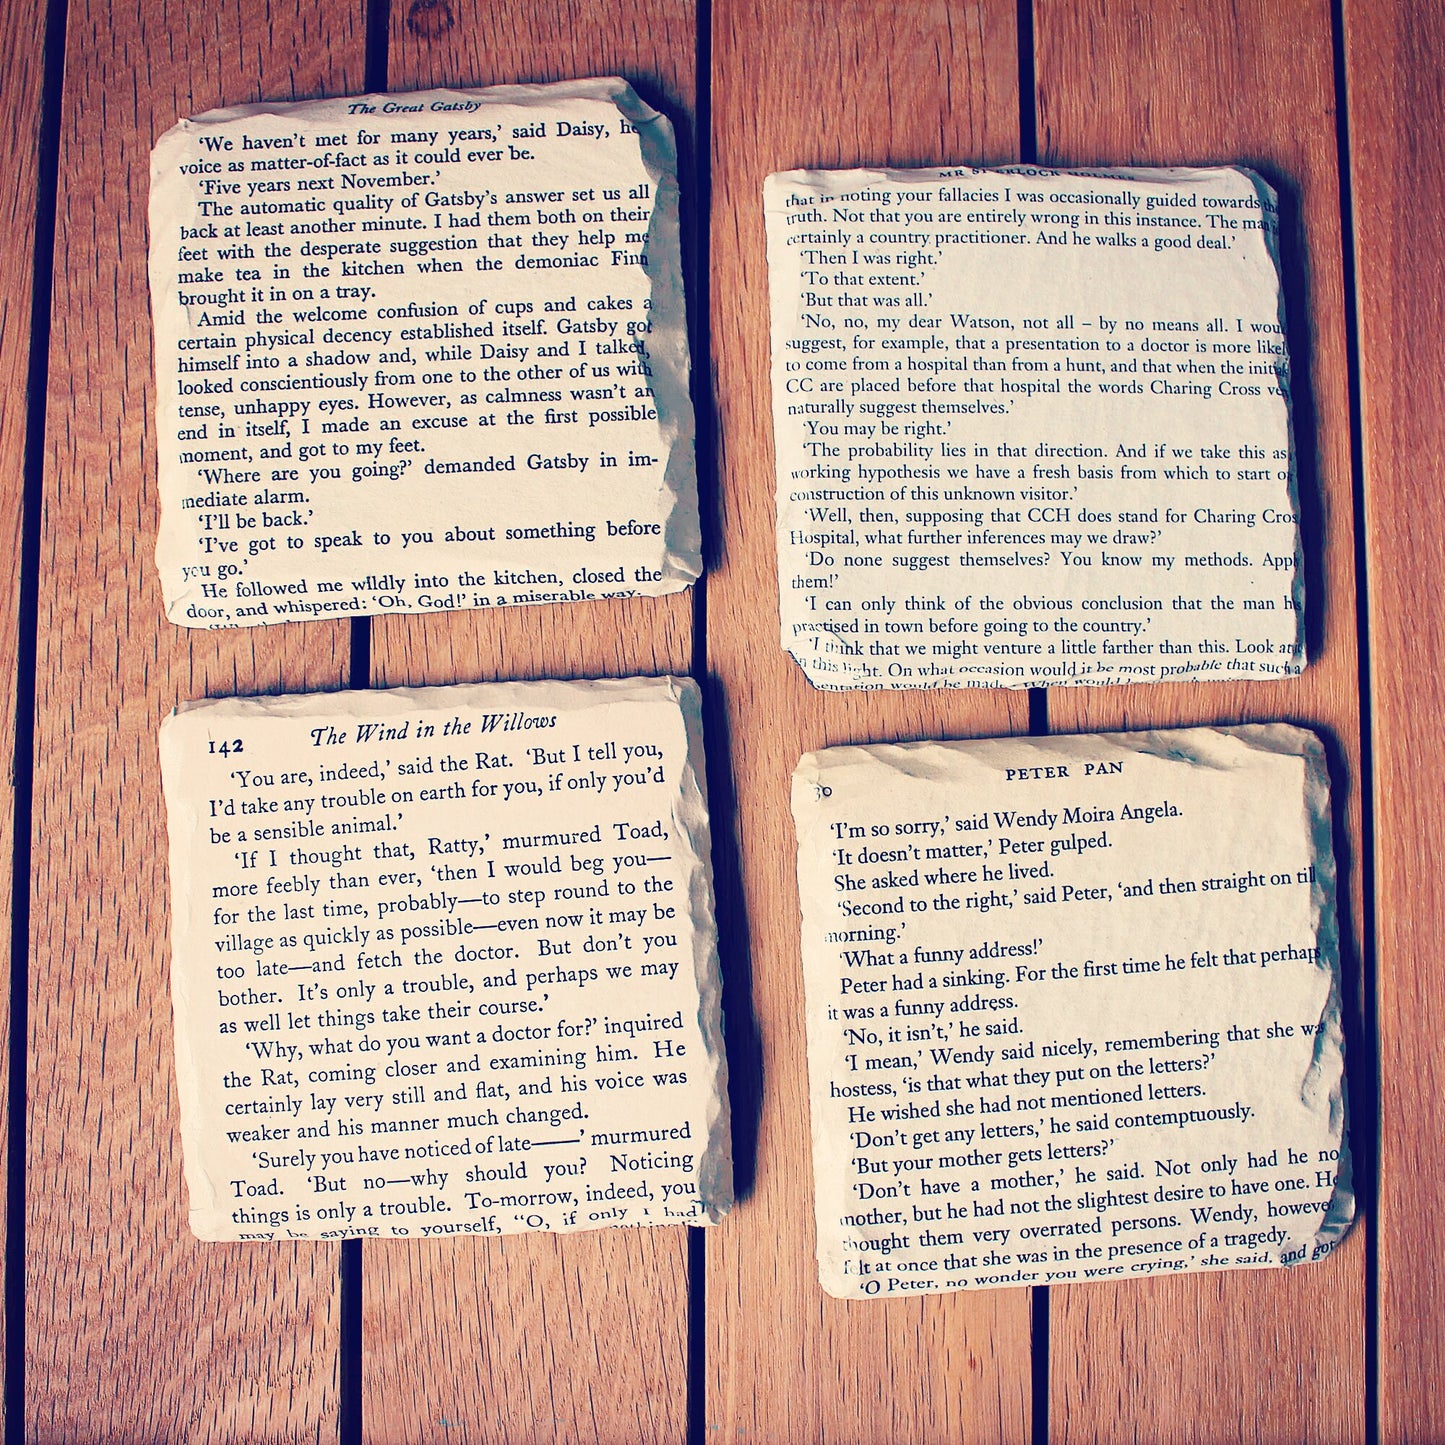 The Great Gatsby
‘We haven’t met for many years,’ said Daisy, he
voice as matter-of-fact as it could ever be.
‘Five years next November.’
The automatic quality of Gatsby’s answer set us all
back at least another minute. I had them both on their
feet with the desperate suggestion that they help me
make tea in the kitchen when the demoniac Finn
brought it in on a tray.
Amid the welcome confusion of cups and cakes a
certain physical decency established itself. Gatsby got
himself into a shadow and, while Daisy and I talked,
looked conscientiously from one to the other of us with
tense, unhappy eyes. However, as calmness wasn’t an
end in itself, I made an excuse at the first possible
moment, and got to my feet.
‘Where are you going?’ demanded Gatsby in im-
mediate alarm.
‘I’ll be back.’
‘I’ve got to speak to you about something before
you go.’
He followed me wildly into the kitchen, closed the
door, and whispered: ‘Oh, God!’ in a miserable way.
MR SHERLOCK HOLMES
that in noting your fallacies I was occasionally guided towards
truth. Not that you are entirely wrong in this instance. The man
certainly a country practitioner. And he walks a good deal.’
‘Then I was right.’
‘To that extent.’
‘But that was all.’
‘No, no, my dear Watson, not all – by no means all. I wou
suggest, for example, that a presentation to a doctor is more likel
to come from a hospital than from a hunt, and that when the initia
CC are placed before that hospital the words Charing Cross ve
naturally suggest themselves.’
‘You may be right.’
‘The probability lies in that direction. And if we take this as
working hypothesis we have a fresh basis from which to start o
construction of this unknown visitor.’
‘Well, then, supposing that CCH does stand for Charing Cros
Hospital, what further inferences may we draw?’
‘Do none suggest themselves? You know my methods. Appl
them!’
‘I can only think of the obvious conclusion that the man h
practised in town before going to the country.’
‘I think that we might venture a little farther than this. Look at
in this light. On what occasion would it be most probable that such a
sentation would be made When would
142 The Wind in the Willows
‘You are, indeed,’ said the Rat. ‘But I tell you,
I’d take any trouble on earth for you, if only you’d
be a sensible animal.’
‘If I thought that, Ratty,’ murmured Toad,
more feebly than ever, ‘then I would beg you—
for the last time, probably—to step round to the
village as quickly as possible—even now it may be
too late—and fetch the doctor. But don’t you
bother. It’s only a trouble, and perhaps we may
as well let things take their course.’
‘Why, what do you want a doctor for?’ inquired
the Rat, coming closer and examining him. He
certainly lay very still and flat, and his voice was
weaker and his manner much changed.
‘Surely you have noticed of late——’ murmured
Toad. ‘But no—why should you? Noticing
things is only a trouble. To-morrow, indeed, you
may be saying to yourself, “O, if only I had
PETER PAN
30
‘I’m so sorry,’ said Wendy Moira Angela.
‘It doesn’t matter,’ Peter gulped.
She asked where he lived.
‘Second to the right,’ said Peter, ‘and then straight on till
morning.’
‘What a funny address!’
Peter had a sinking. For the first time he felt that perhaps
it was a funny address.
‘No, it isn’t,’ he said.
‘I mean,’ Wendy said nicely, remembering that she was
hostess, ‘is that what they put on the letters?’
He wished she had not mentioned letters.
‘Don’t get any letters,’ he said contemptuously.
‘But your mother gets letters?’
‘Don’t have a mother,’ he said. Not only had he no
mother, but he had not the slightest desire to have one. He
thought them very overrated persons. Wendy, however,
felt at once that she was in the presence of a tragedy.
‘O Peter, no wonder you were crying,’ she said, and got